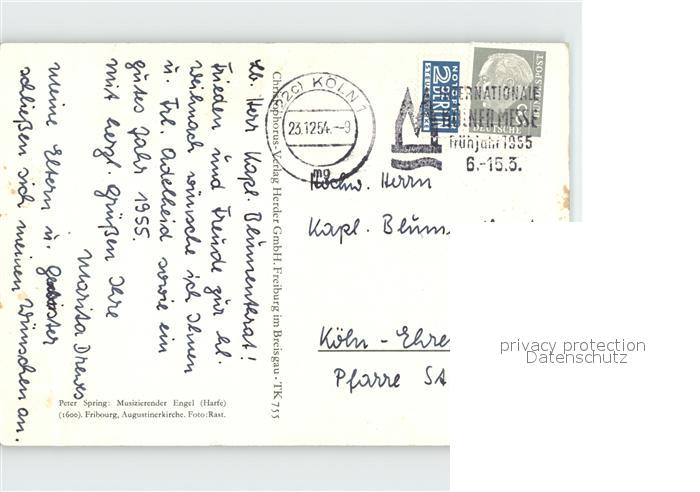 Lb. Herr Kapl. Blumentrat!
Frieden und Freude zur hl.
Weihnach wünsche ich Ihnen
u. Frl. Adelheid sowie ein
gutes Jahr 1955.
mit herzl. Grüßen Ihre
Marita Drews
meine Eltern u.
schließen sich meinen Wünschen an.
Peter Spring: Musizierender Engel (Harfe)
(1600). Fribourg, Augustinerkirche. Foto: Rast.
Christophorus-Verlag Herder GmbH. Freiburg im Breisgau · TK 755
(22c) KÖLN 1
23.12.54.-9
mg
NOTOPFER
2 BERLIN
STEUERMARKE
DEUTSCHE BUNDESPOST
INTERNATIONALE
KÖLNER MESSE
Frühjahr 1955
6.-15.3.
Hochw. Herrn
Kapl. Blum
Köln - Ehre
Pfarre
privacy protection
Datenschutz